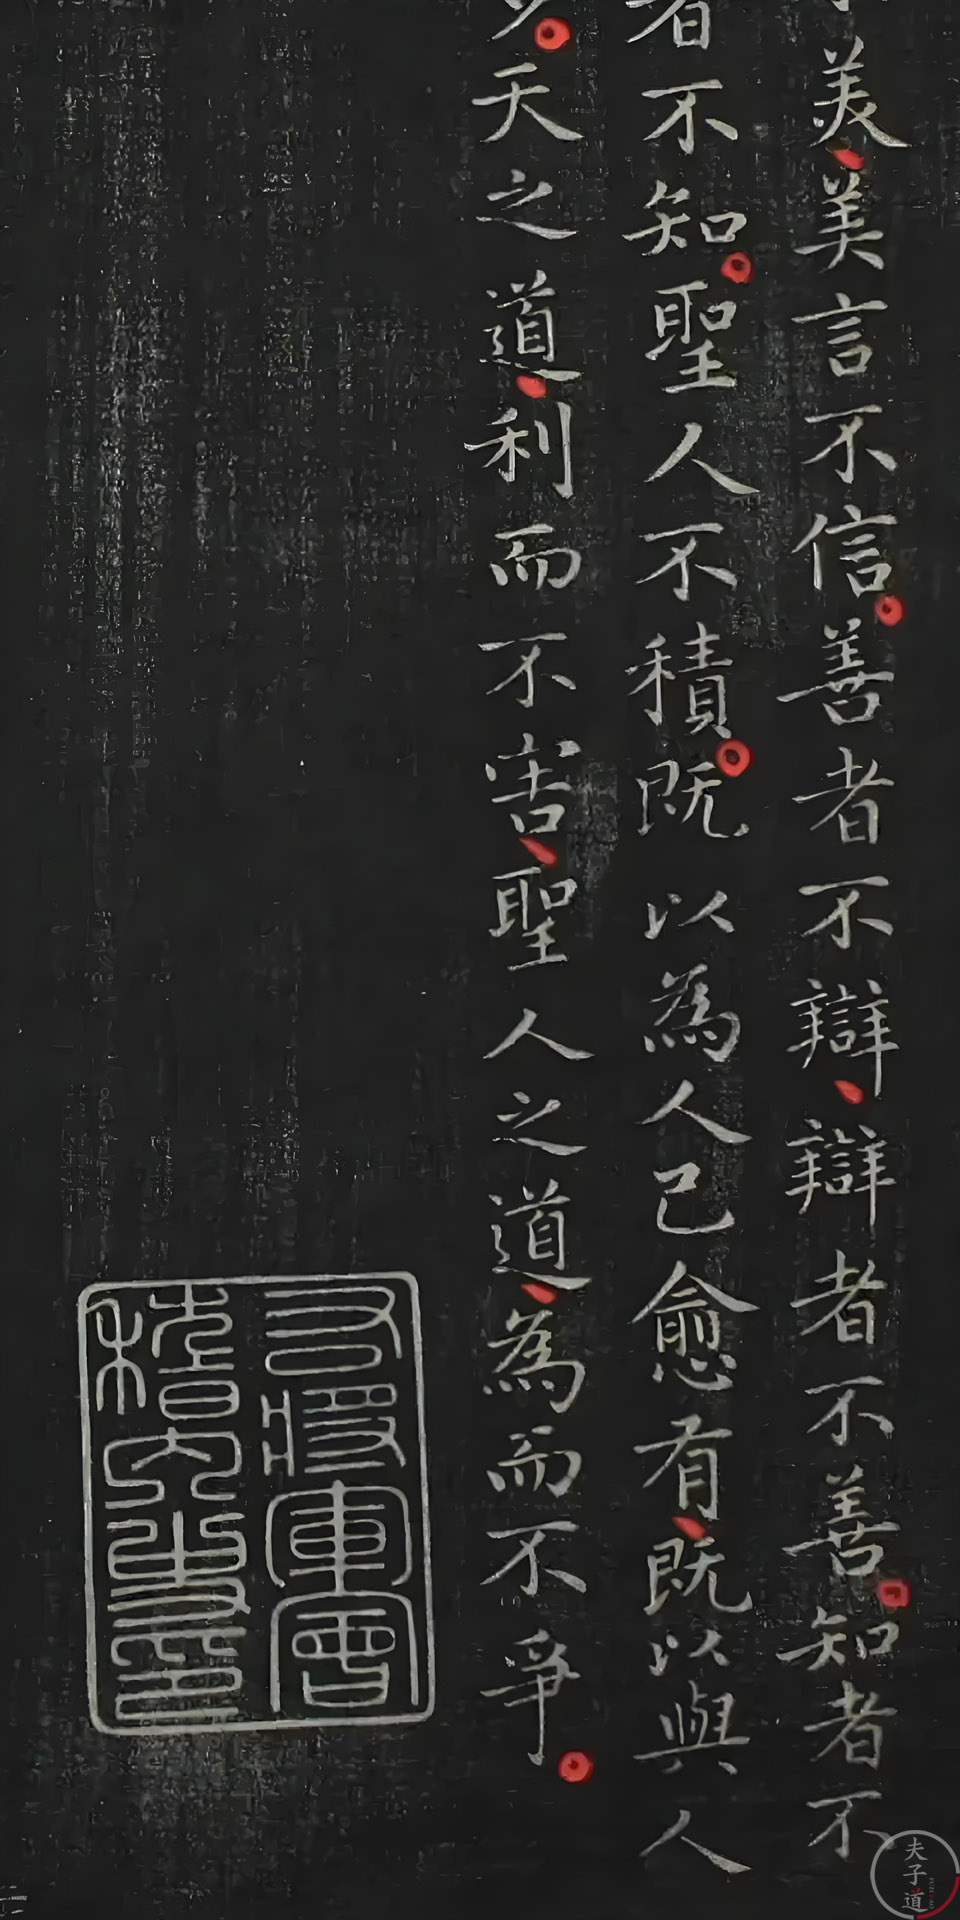 美美言不信善者不辯辯者不善知者不
者不知聖人不積既以為人己愈有既以與人
天之道利而不害聖人之道為而不爭
右將軍會
稽內史印
夫子道